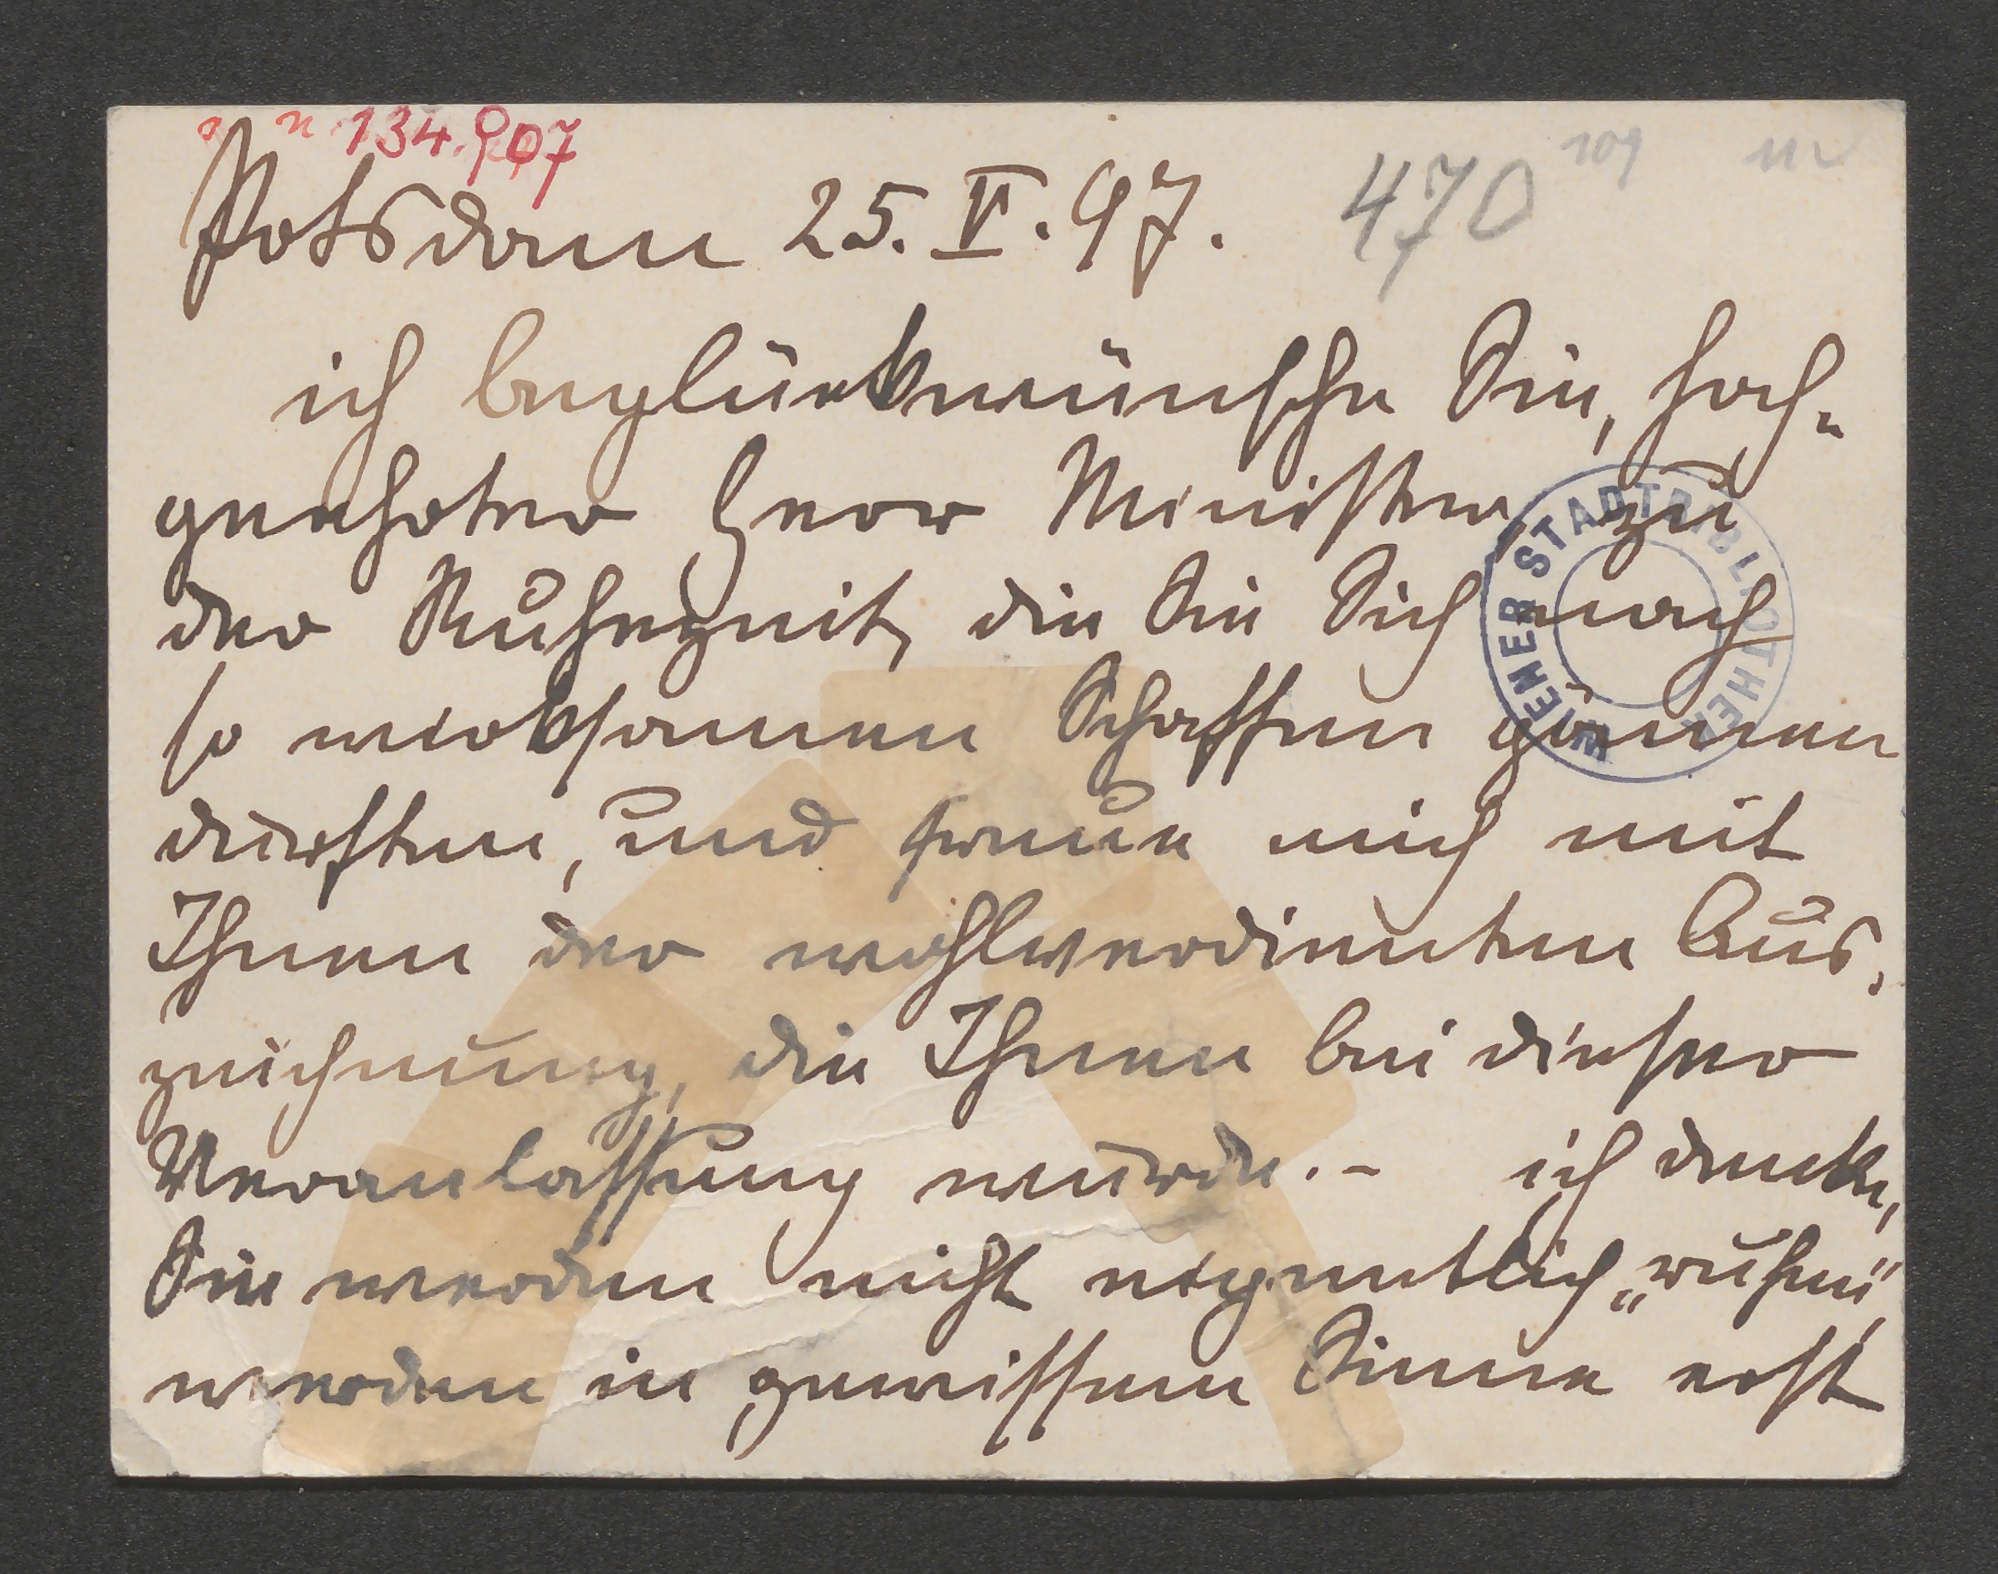 n 134.907
109
Potsdam 25. V. 97.
470
ich beglückwünsche Sie, hoch-
geehrter Herr Minister, zu
der Ruhezeit, die Sie Sich nach
so wirksamen Schaffen gönnen
durften, und freue mich mit
Ihnen der wohlverdienten Aus-
zeichnung, die Ihnen bei dieser
Veranlassung wurde. - ich denke,
Sie werden nicht eigentlich „ruhen“,
werden in gewissem Sinne erst
WIENER STADTBIBLIOTHEK